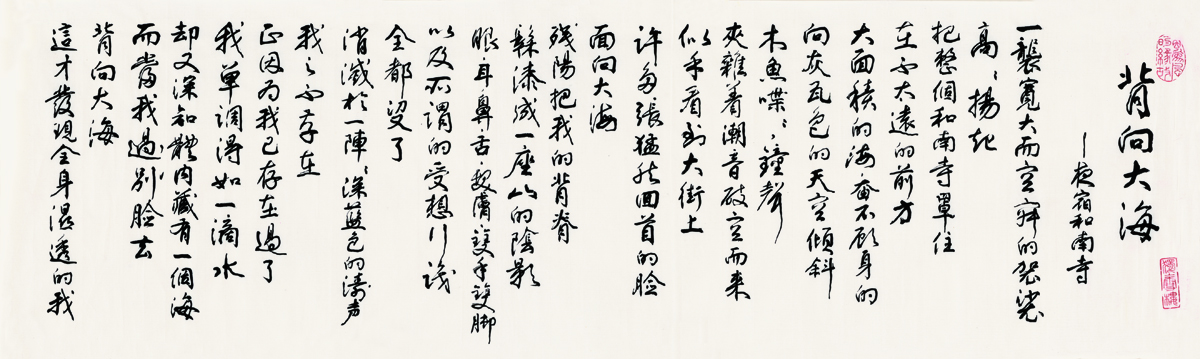 背向大海
—夜宿和南寺
一襲寬大而空寂的袈裟
高高揚起
把整個和南寺罩住
在不太遠的前方
大面積的海奮不顧身的
向灰瓦色的天空傾斜
木魚喋喋，鐘聲
夾雜着潮音破空而來
似乎看到大街上
許多張猛然回首的臉
面向大海
殘陽把我的背脊
髹漆成一座山的陰影
眼耳鼻舌髮膚雙手雙腳
以及所謂的受想行識
全都沒了
消滅於一陣陣深藍色的濤声
我之不存在
正因為我已存在過了
我單調得如一滴水
却又深知體內藏有一個海
而當我過別臉去
背向大海
這才發現全身濕透的我